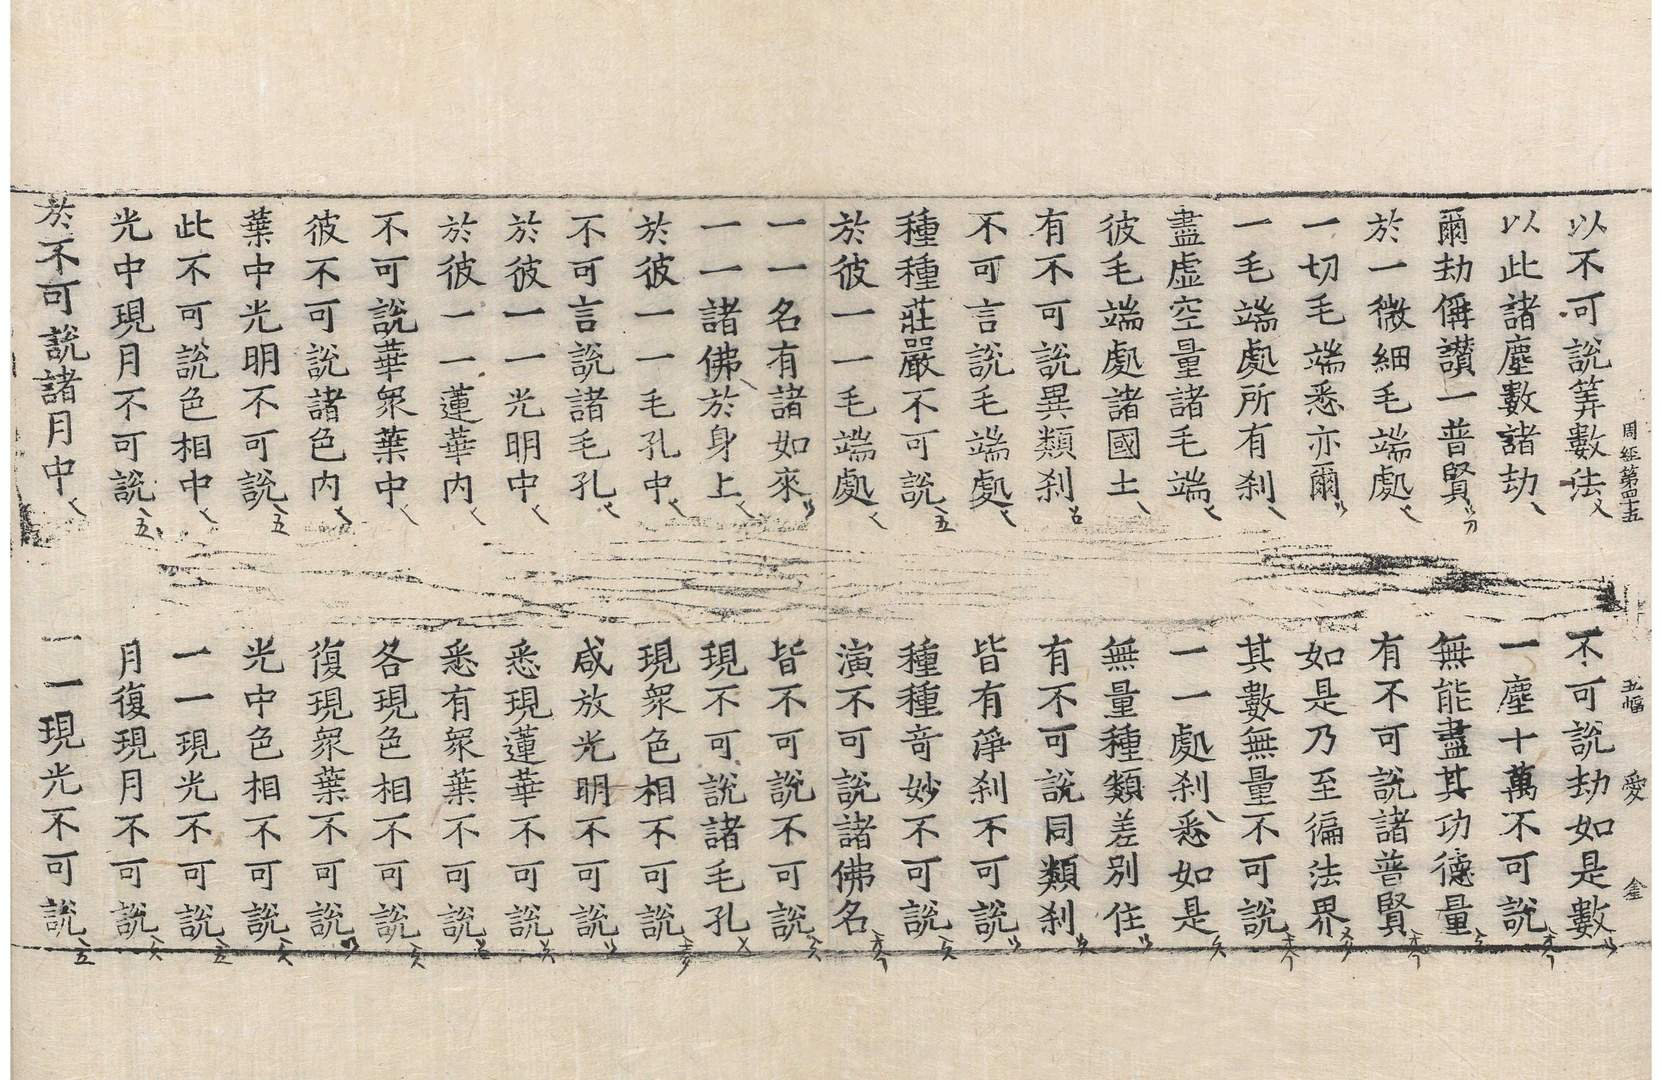 周經第四十五 五幅 愛 金
以不可說筭數法 不可說劫如是數
以此諸塵數諸劫 一塵十萬不可說
爾劫偁讚一普賢 無能盡其功德量
於一微細毛端處 有不可說諸普賢
一切毛端悉亦爾 如是乃至徧法界
一毛端處所有刹 其數無量不可說
盡虛空量諸毛端 一一處刹悉如是
彼毛端處諸國土 無量種類差別住
有不可說異類刹 有不可說同類刹
不可言說毛端處 皆有淨刹不可說
種種莊嚴不可說 種種奇妙不可說
於彼一一毛端處 演不可說諸佛名
一一名有諸如來 皆不可說不可說
一一諸佛於身上 現不可說諸毛孔
於彼一一毛孔中 現衆色相不可說
不可言說諸毛孔 咸放光明不可說
於彼一一光明中 悉現蓮華不可說
於彼一一蓮華内 悉有衆葉不可說
不可說華衆葉中 各現色相不可說
彼不可說諸色内 復現衆葉不可說
葉中光明不可說 光中色相不可說
此不可說色相中 一一現光不可說
光中現月不可說 月復現月不可說
於不可說諸月中 一一現光不可說